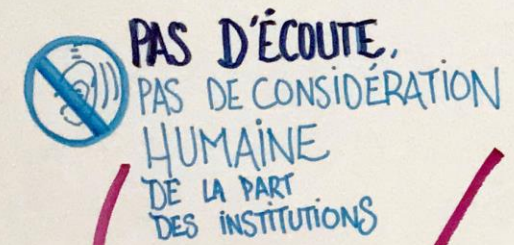 PAS D'ÉCOUTE,
PAS DE CONSIDÉRATION
HUMAINE
DE LA PART
DES INSTITUTIONS